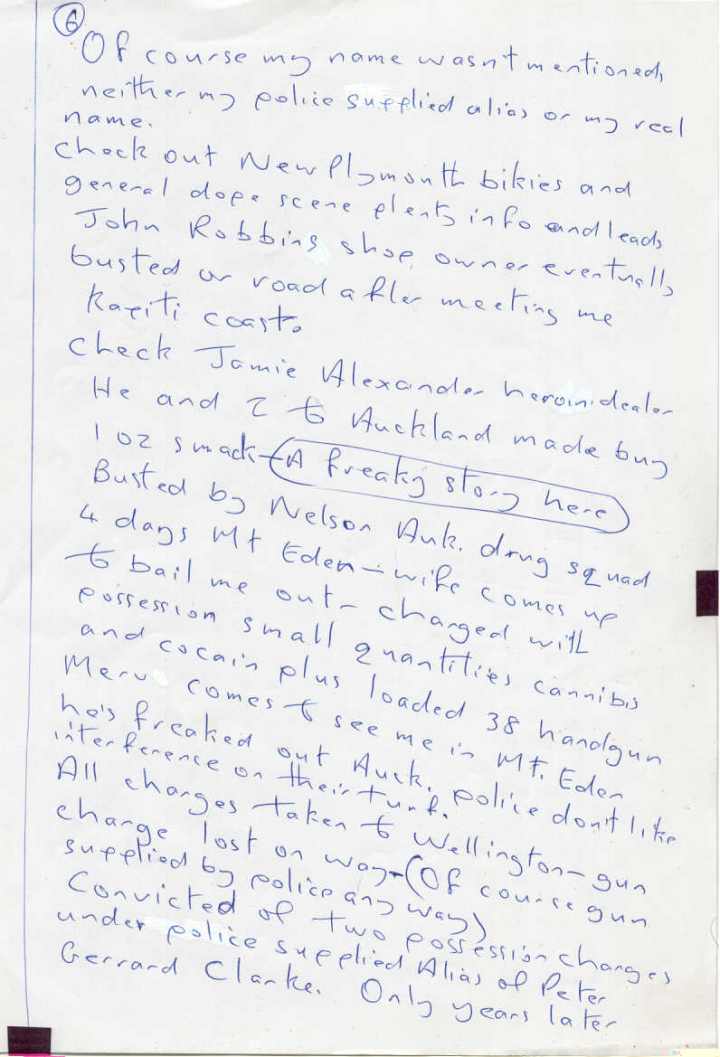 6
Of course my name wasn't mentioned,
neither my police supplied alias or my real
name.
Check out New Plymouth bikies and
general dope scene plenty info and leads
John Robbins shop owner eventually
busted on road after meeting me
Kapiti coast.
Check Jamie Alexander heroin dealer
He and I to Auckland made buy
1 oz smack - (A freaky story here)
Busted by Nelson Auk. drug squad
4 days Mt Eden - wife comes up
to bail me out - charged with
possession small quantities cannibis
and cocain plus loaded 38 handgun
Merv comes to see me in Mt. Eden
he's freaked out Auck. police don't like
interference on their turf.
All charges taken to Wellington - gun
charge lost on way - (Of course gun
supplied by police any way)
Convicted of two possession charges
under police supplied Alias of Peter
Gerrard Clarke. Only years later